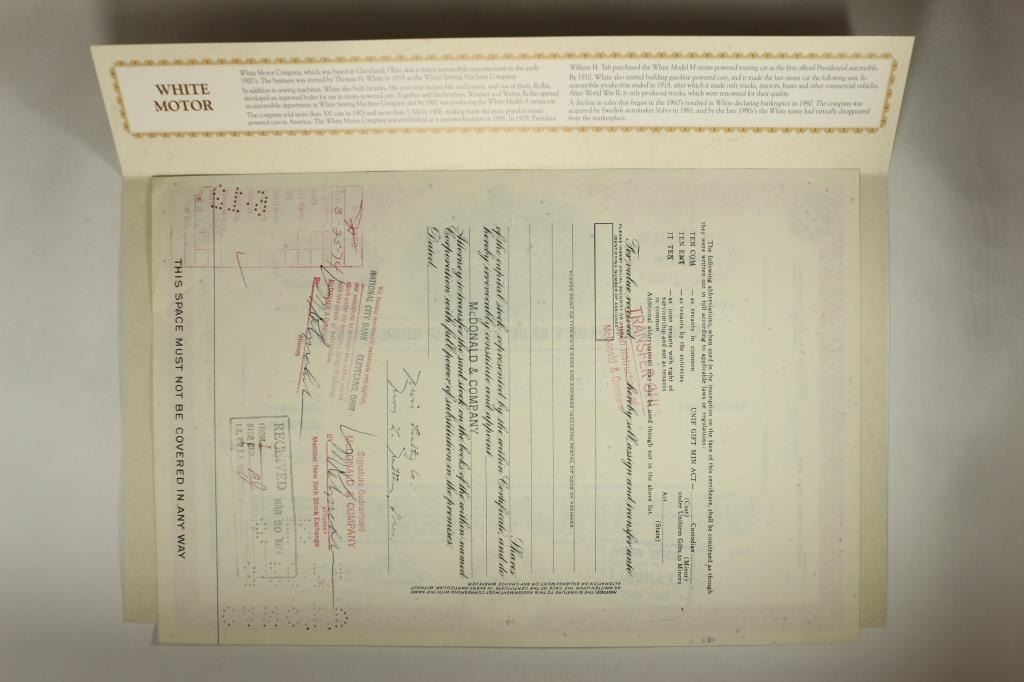 WHITE
MOTOR
White Motor Company, which was based in Cleveland, Ohio, was a major automobile manufacturer in the early
1900's. The business was started by Thomas H. White in 1859 as the White Sewing Machine Company.
In addition to sewing machines, White also built bicycles. His sons were automobile enthusiasts, and one of them, Rollin,
developed an improved boiler for use in steam-powered cars. Together with his brothers, Windsor and Walter, Rollin opened
an automobile department at White Sewing Machine Company and by 1900 was producing the White Model A steam car.
The company sold more than 500 cars in 1903 and more than 1,500 in 1906, making them the most popular steam-
powered cars in America. The White Motor Company was established as a separate business in 1906. In 1909, President
William H. Taft purchased the White Model M steam-powered touring car as the first official Presidential automobile.
By 1910, White also started building gasoline-powered cars, and it made the last steam car the following year. Its
automobile production ended in 1918, after which it made only trucks, tractors, buses and other commercial vehicles.
After World War II, it only produced trucks, which were renowned for their quality.
A decline in sales that began in the 1960's resulted in White declaring bankruptcy in 1980. The company was
acquired by Swedish automaker Volvo in 1981, and by the late 1980's the White name had virtually disappeared
from the marketplace.
The following abbreviations, when used in the inscription on the face of this certificate, shall be construed as though
they were written out in full according to applicable laws or regulations:
TEN COM — as tenants in common
UNIF GIFT MIN ACT— Custodian
(Cust) (Minor)
TEN ENT — as tenants by the entireties
under Uniform Gifts to Minors
JT TEN — as joint tenants with right of
survivorship and not as tenants
in common
Act
(State)
Additional abbreviations may also be used though not in the above list.
TRANSFER
McDonald & Company
For value received hereby sell, assign and transfer unto
PLEASE INSERT SOCIAL SECURITY OR OTHER
IDENTIFYING NUMBER OF ASSIGNEE
PLEASE PRINT OR TYPEWRITE NAME AND ADDRESS INCLUDING POSTAL ZIP CODE OF ASSIGNEE
Shares
of the capital stock represented by the within Certificate, and do
hereby irrevocably constitute and appoint
McDONALD & COMPANY
Attorney to transfer the said stock on the books of the within-named
Corporation with full power of substitution in the premises.
Dated,
NOTICE: THE SIGNATURE TO THIS ASSIGNMENT MUST CORRESPOND WITH THE NAME
AS WRITTEN UPON THE FACE OF THE CERTIFICATE IN EVERY PARTICULAR, WITHOUT
ALTERATION OR ENLARGEMENT OR ANY CHANGE WHATEVER.
NATIONAL CITY BANK CLEVELAND, OHIO
Attorney
Signature Guaranteed
McDONALD & COMPANY
BY
Member New York Stock Exchange
3-25-74
RECEIVED MAR 29 1974
FROM
THIS SPACE MUST NOT BE COVERED IN ANY WAY